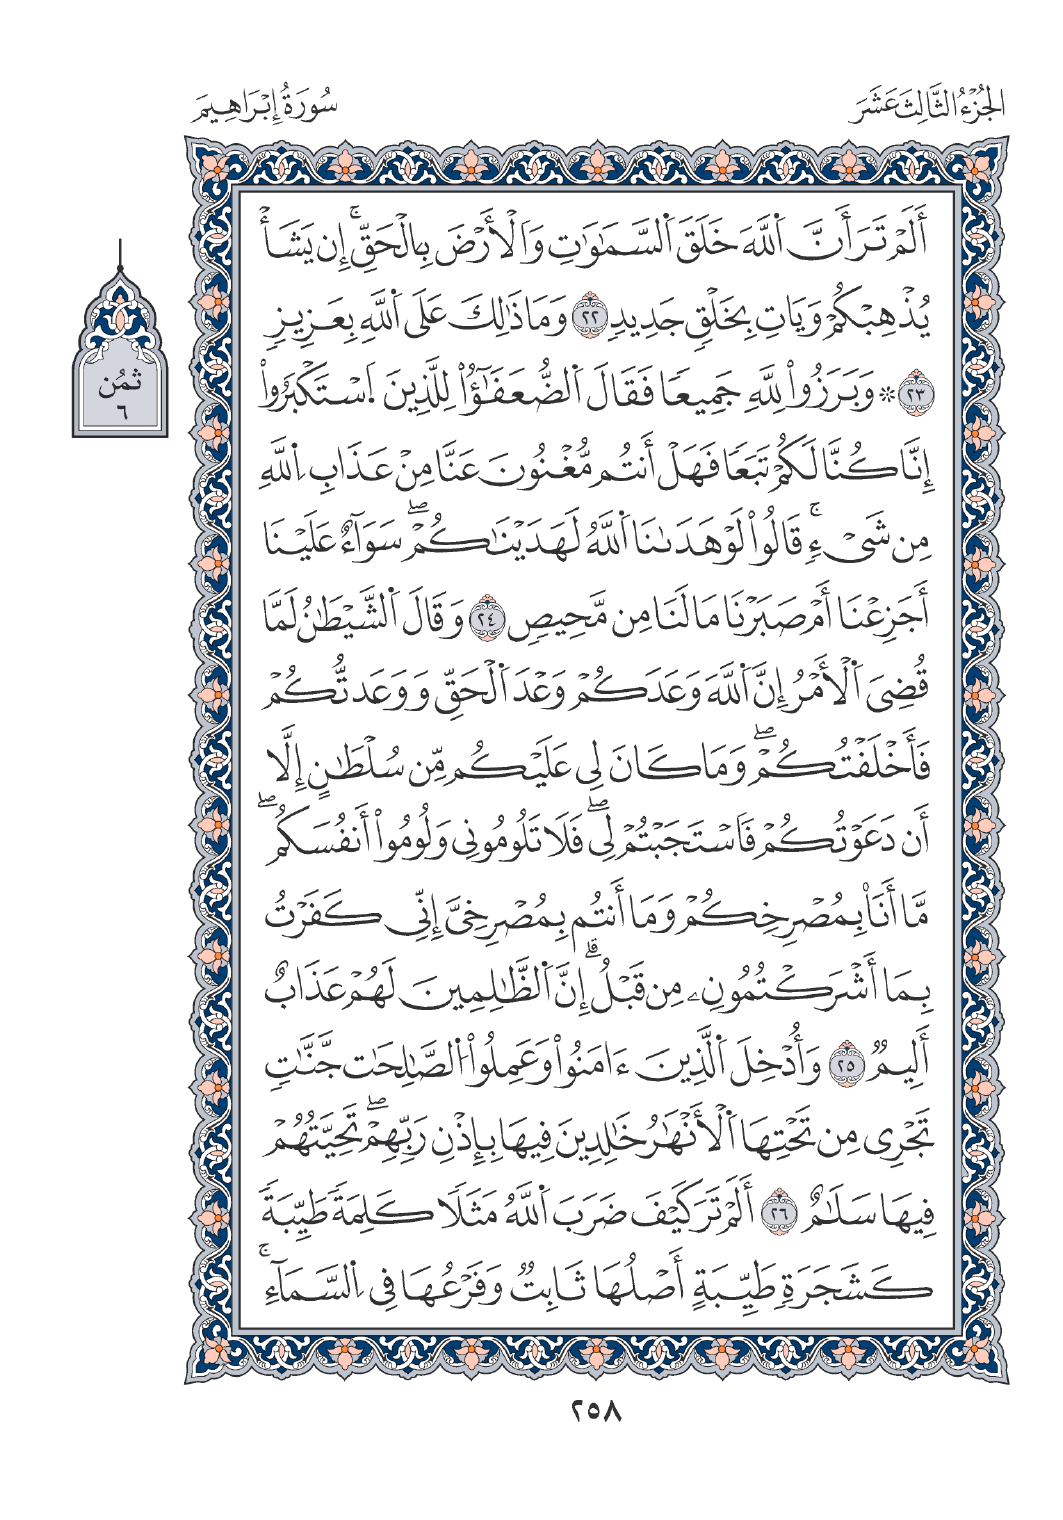 الجُزْءُ الثَّالِثَ عَشَرَ
سُورَةُ إِبْرَاهِيمَ
أَلَمْ تَرَ أَنَّ اَ۬للَّهَ خَلَقَ اَ۬لسَّمَٰوَٰتِ وَالْأَرْضَ بِالْحَقِّۚ إِن يَشَأْ
يُذْهِبْكُمْ وَيَاتِ بِخَلْقٖ جَدِيدٖ ٢٢ وَمَا ذَٰلِكَ عَلَى اَ۬للَّهِ بِعَزِيزٖ
٢٣ ۞ وَبَرَزُواْ لِلهِ جَمِيعٗا فَقَالَ اَ۬لضُّعَفَٰٓؤُاْ لِلَّذِينَ اَ۪سْتَكْبَرُواْ
إِنَّا كُنَّا لَكُمْ تَبَعٗا فَهَلْ أَنتُم مُّغْنُونَ عَنَّا مِنْ عَذَابِ اِ۬للَّهِ
مِن شَيْءٖۚ قَالُواْ لَوْ هَدَىٰنَا اَ۬للَّهُ لَهَدَيْنَٰكُمْۖ سَوَآءٌ عَلَيْنَا
أَجَزِعْنَا أَمْ صَبَرْنَا مَا لَنَا مِن مَّحِيصٖ ٢٤ وَقَالَ اَ۬لشَّيْطَٰنُ لَمَّا
قُضِيَ اَ۬لْأَمْرُ إِنَّ اَ۬للَّهَ وَعَدَكُمْ وَعْدَ اَ۬لْحَقِّ وَوَعَدتُّكُمْ
فَأَخْلَفْتُكُمْۖ وَمَا كَانَ لِي عَلَيْكُم مِّن سُلْطَٰنٍ إِلَّا
أَن دَعَوْتُكُمْ فَاسْتَجَبْتُمْ لِيۖ فَلَا تَلُومُونِي وَلُومُواْ أَنفُسَكُمۖ
مَّا أَنَا۠ بِمُصْرِخِكُمْ وَمَا أَنتُم بِمُصْرِخِيَّ إِنِّي كَفَرْتُ
بِمَا أَشْرَكْتُمُونِۦ مِن قَبْلُۗ إِنَّ اَ۬لظَّٰلِمِينَ لَهُمْ عَذَابٌ
أَلِيمٞ ٢٥ وَأُدْخِلَ اَ۬لَّذِينَ ءَامَنُواْ وَعَمِلُواْ اُ۬لصَّٰلِحَٰت جَّنَّٰتٖ
تَجْرِي مِن تَحْتِهَا اَ۬لْأَنْهَٰرُ خَٰلِدِينَ فِيهَا بِإِذْنِ رَبِّهِمْۖ تَحِيَّتُهُمْ
فِيهَا سَلَٰمٌ ٢٦ أَلَمْ تَرَ كَيْفَ ضَرَبَ اَ۬للَّهُ مَثَلٗا كَلِمَةٗ طَيِّبَةٗ
كَشَجَرَةٖ طَيِّبَةٍ أَصْلُهَا ثَابِتٞ وَفَرْعُهَا فِي اِ۬لسَّمَآءِۚ
ثمُن
٦
٢٥٨